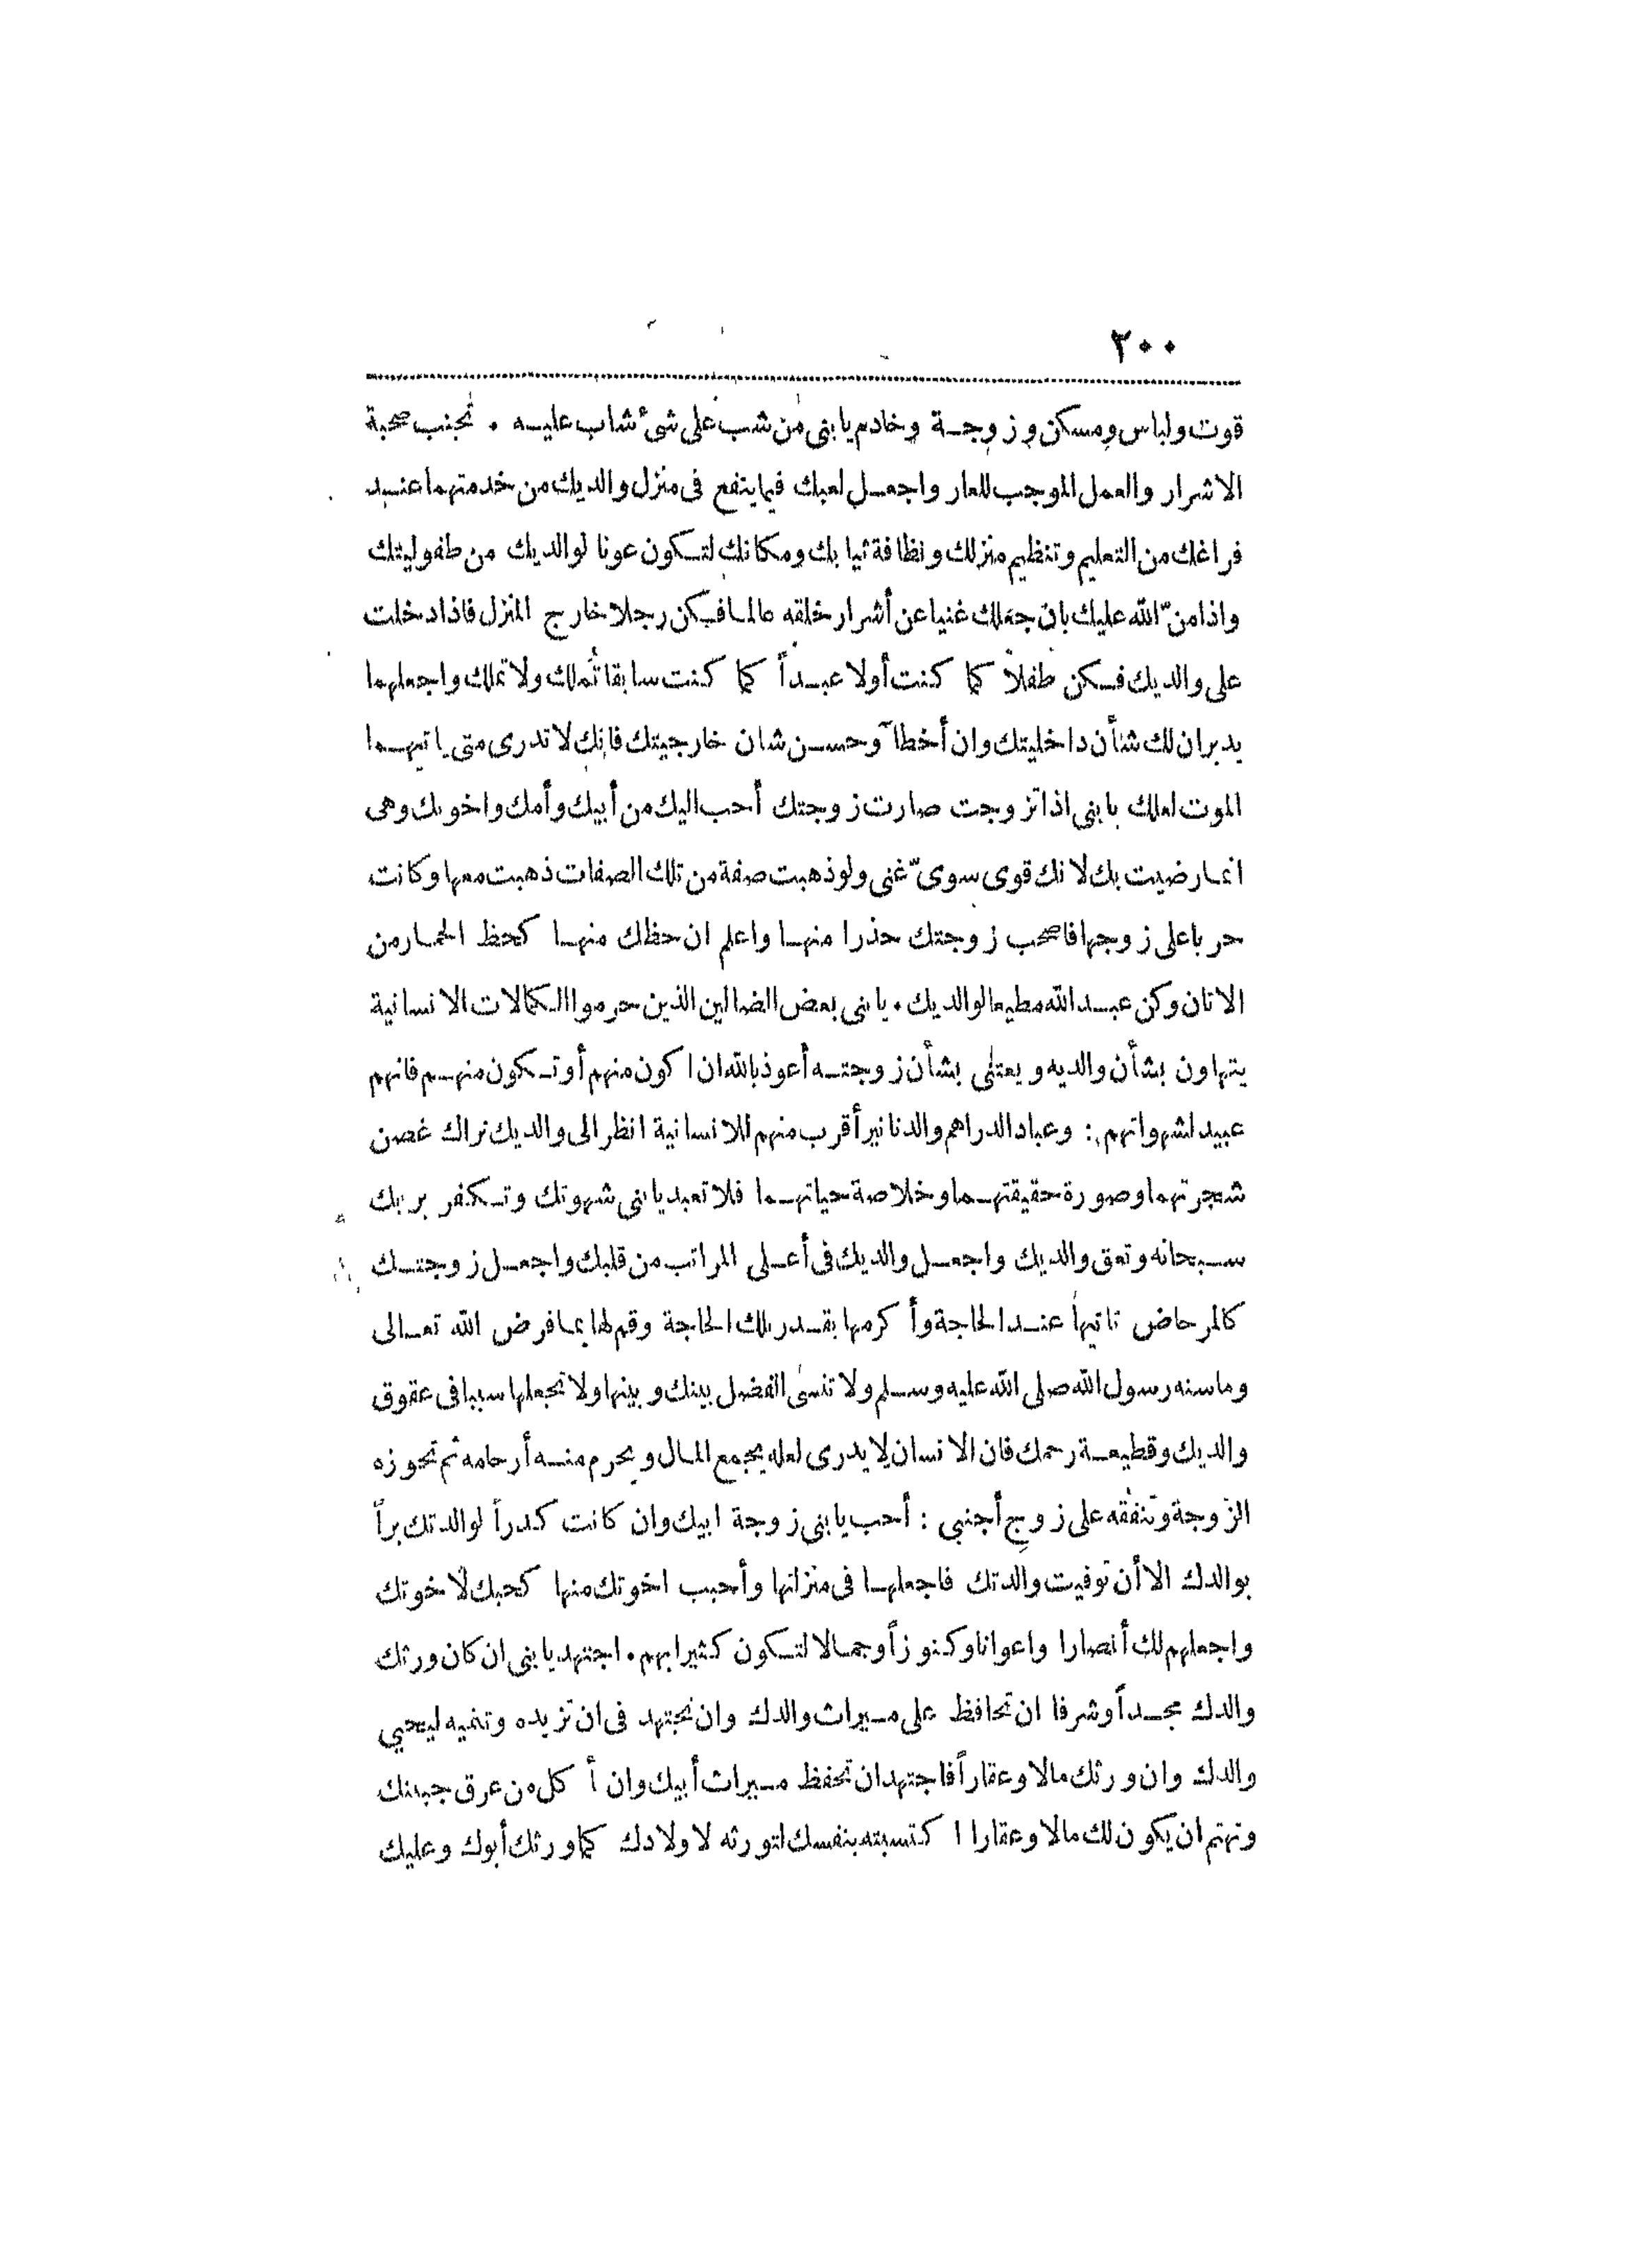 ٢٠٠
قوت ولباس ومسكن وزوجة وخادم يابنى من شب على شئ شاب عليه . تجنب صحبة
الاشرار والعمل الموجب للعار واجعل لعبك فيما ينفع فى منزل والديك من خدمتهما عند
فراغك من التعليم وتنظيم منزلك ونظافة ثيابك ومكانك لتكون عونا لوالديك من طفوليتك
واذا منّ الله عليك بان جعلك غنيا عن أشرار خلقه عالما فكن رجلا خارج المنزل فاذا دخلت
على والديك فكن طفلاً كما كنت أولا عبداً كما كنت سابقا تُملك ولا تملك واجعلهما
يدبران لك شأن داخليتك وان أخطآ وحسن شان خارجيتك فانك لا تدرى متى ياتيهما
الموت لعلك يابنى اذا تزوجت صارت زوجتك أحب اليك من أبيك وأمك واخوتك وهى
انما رضيت بك لانك قوى سوىّ غنى ولو ذهبت صفة من تلك الصفات ذهبت معها وكانت
حربا على زوجها فاصحب زوجتك حذرا منها واعلم ان حظك منها كحظ الحمار من
الاتان وكن عبد الله مطيعا لوالديك . يابنى بعض الضالين الذين حرموا الكمالات الانسانية
يتهاون بشأن والديه ويعتنى بشأن زوجته أعوذ بالله ان اكون منهم أو تكون منهم فانهم
عبيد لشهواتهم : وعباد الدراهم والدنانير أقرب منهم للانسانية انظر الى والديك تراك غصن
شجرتهما وصورة حقيقتهما وخلاصة حياتهما فلا تعبد يابنى شهوتك وتكفر بربك
سبحانه وتعق والديك واجعل والديك فى أعلى المراتب من قلبك واجعل زوجتك
كالمرحاض تاتيها عند الحاجة وأكرمها بقدر تلك الحاجة وقم لها بما فرض الله تعالى
وما سنه رسول الله صلى الله عليه وسلم ولا تنسى الفضل بينك وبينها ولا تجعلها سببا فى عقوق
والديك وقطيعة رحمك فان الانسان لا يدرى لعله يجمع المال ويحرم منه أرحامه ثم تحوزه
الزوجة وتنفقه على زوج أجنبي : أحب يابنى زوجة ابيك وان كانت كدراً لوالدتك براً
بوالدك الا أن توفيت والدتك فاجعلها فى منزلتها وأحبب اخوتك منها كحبك لاخوتك
واجعلهم لك أنصارا واعوانا وكنوزاً وجمالا لتكون كثيرا بهم . اجتهد يابنى ان كان ورثك
والدك مجداً وشرفا ان تحافظ على ميراث والدك وان تجتهد فى ان تزيده وتنميه ليحيي
والدك وان ورثك مالا وعقاراً فاجتهد ان تحفظ ميراث أبيك وان أكل من عرق جبينك
وتهتم ان يكون لك مالا وعقارا اكتسبته بنفسك لتورثه لاولادك كما ورثك أبوك وعليك